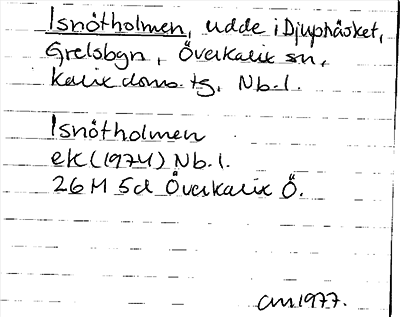 Isnötholmen, udde i Djupträsket,
Grelsbyn, Överkalix sn,
Kalix doms. tg, Nb. l.
Isnötholmen
ek (1974) Nb. l.
26 M 5d Överkalix Ö.
am 1977.